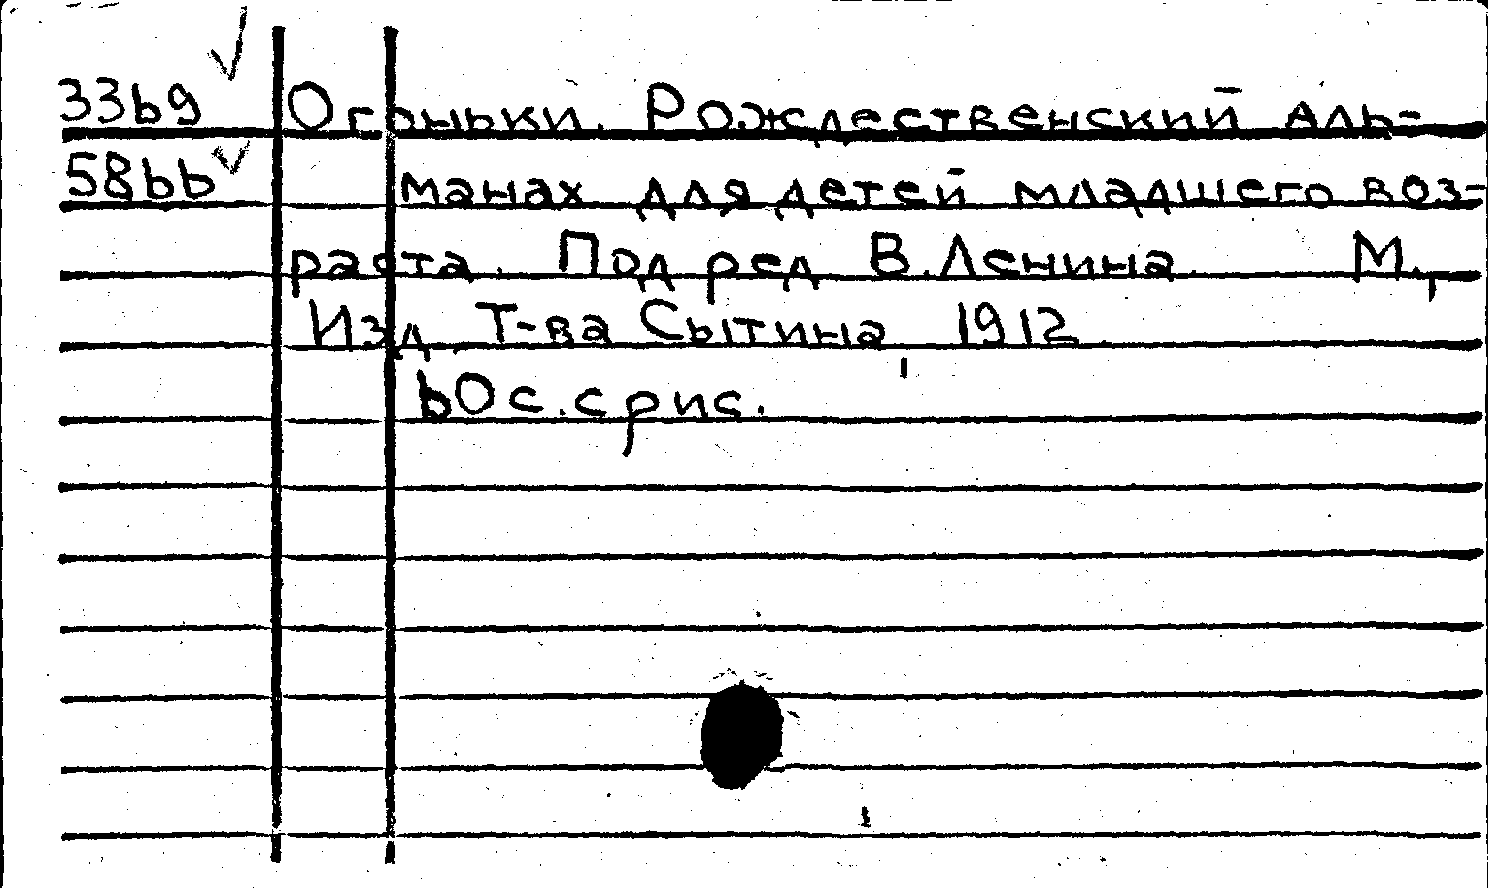 3369 Огоньки. Рождественский аль-
5866 манах для детей младшего воз-
раста. Под ред В. Ленина. М.,
Изд. Т-ва Сытина, 1912
60 с. с рис.